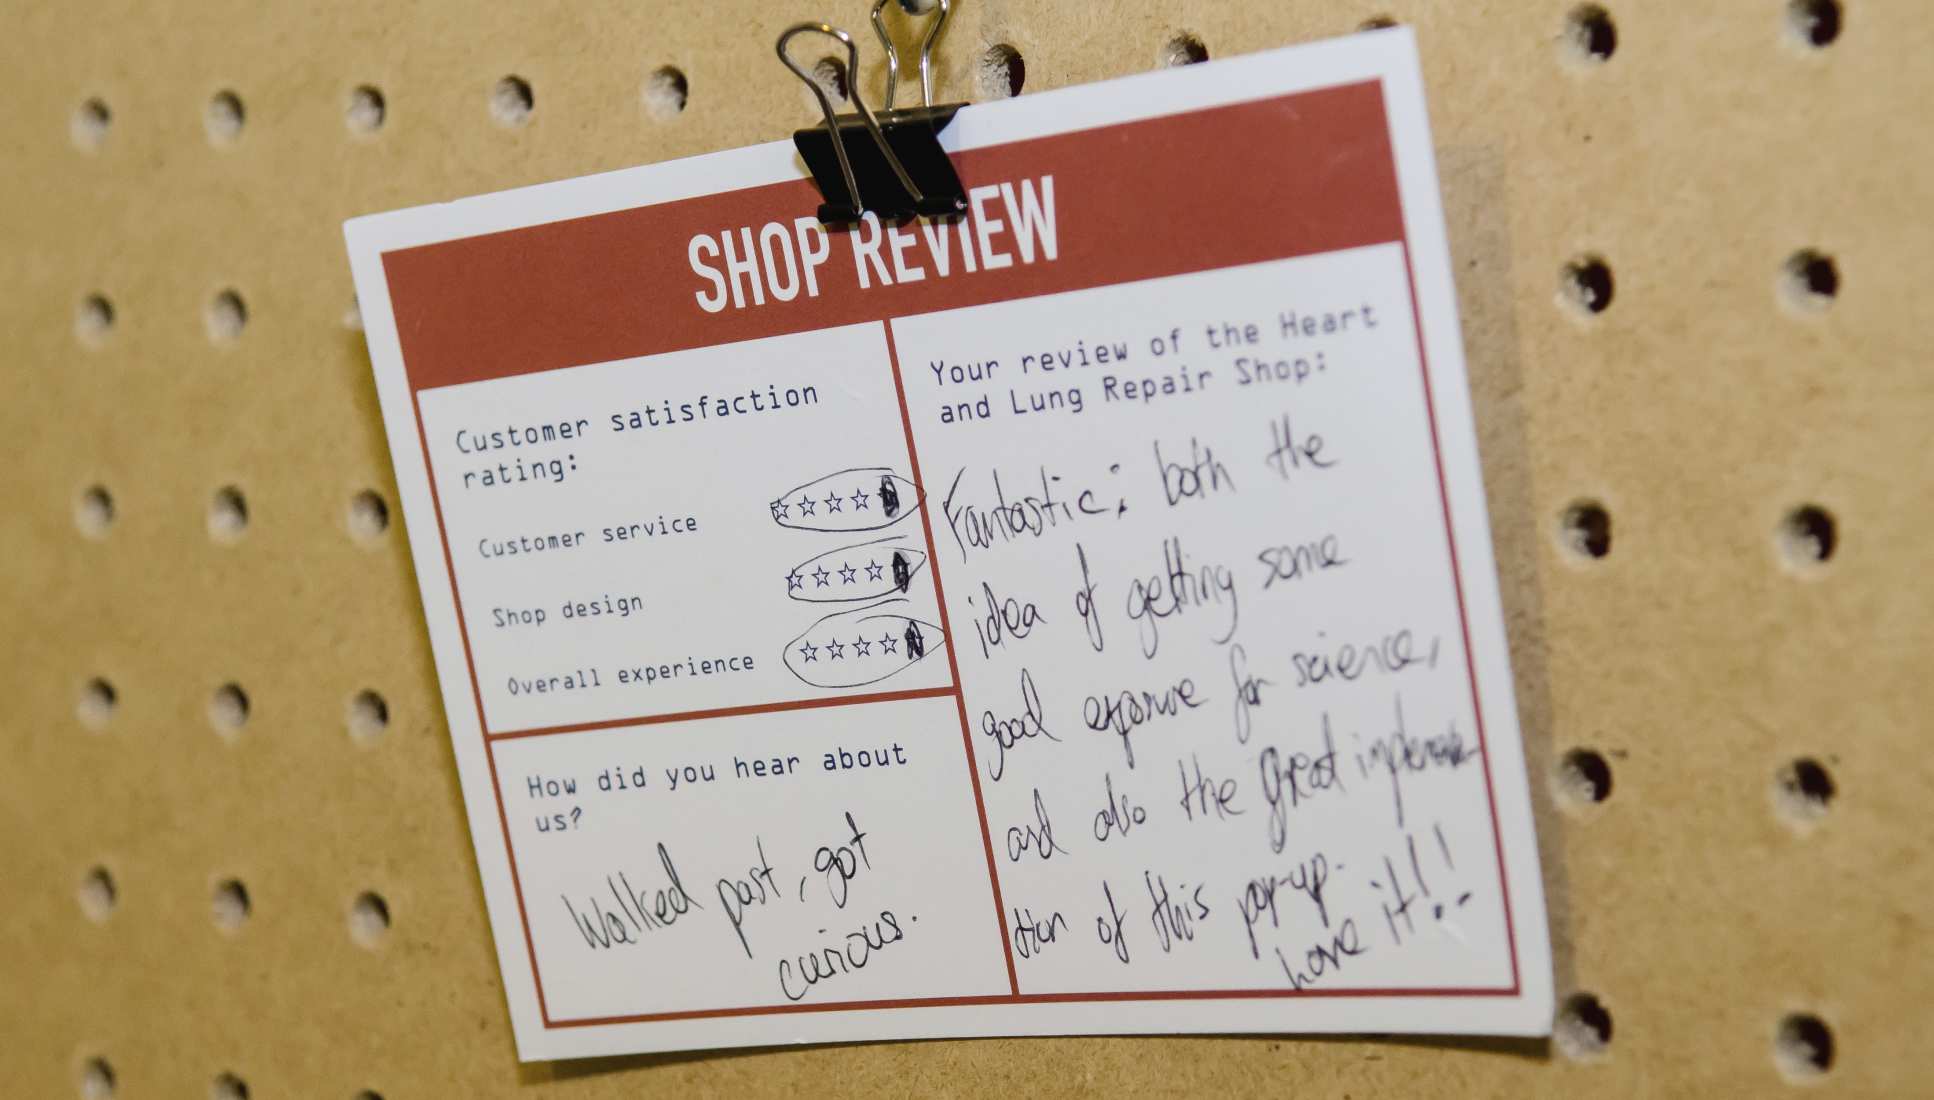 SHOP REVIEW
Customer satisfaction
rating:
Customer service ☆☆☆☆☆
Shop design ☆☆☆☆☆
Overall experience ☆☆☆☆☆
How did you hear about
us?
Walked past, got
curious.
Your review of the Heart
and Lung Repair Shop:
Fantastic; both the
idea of getting some
good exposure for science,
and also the great implementa-
tion of this pop-up.
Love it!!